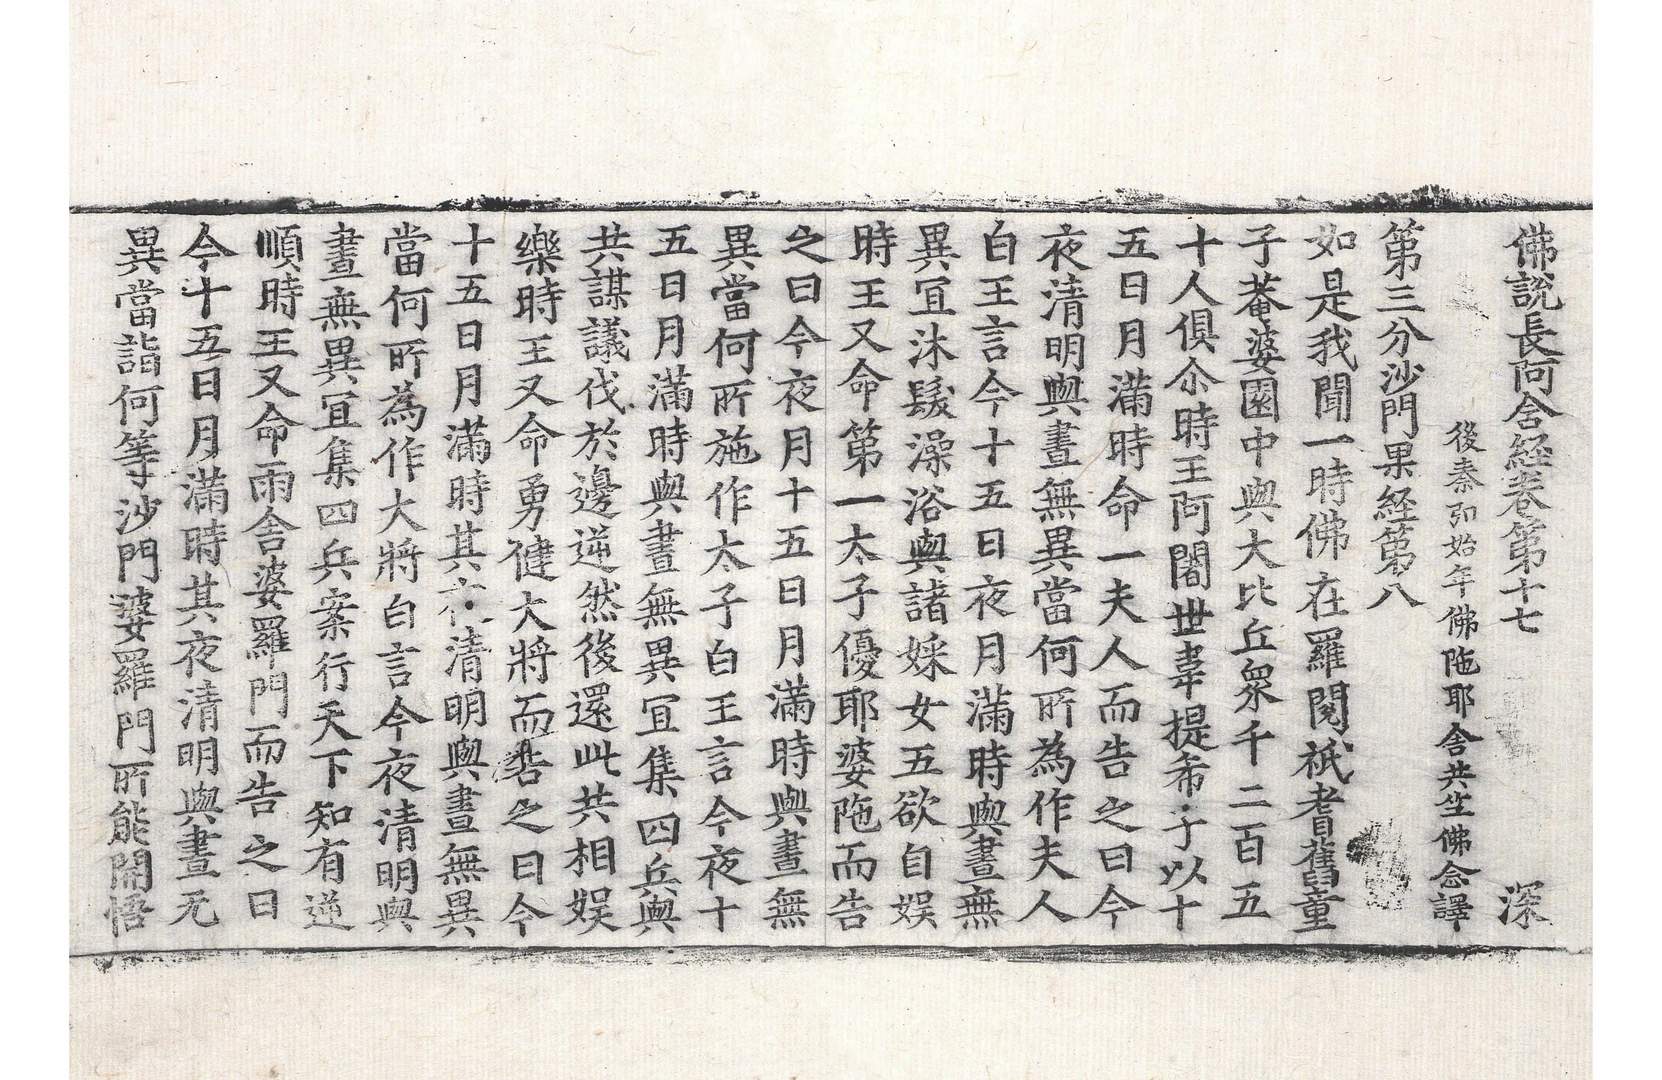 佛說長阿含經卷第十七 深
後秦弘始年佛陁耶舍共竺佛念譯
第三分沙門果經第八
如是我聞一時佛在羅閱祇耆舊童
子菴婆園中與大比丘衆千二百五
十人俱尒時王阿闍世韋提希子以十
五日月滿時命一夫人而告之曰今
夜清明與晝無異當何所為作夫人
白王言今十五日夜月滿時與晝無
異冝沐髮澡浴與諸婇女五欲自娛
時王又命第一太子優耶婆陁而告
之曰今夜月十五日月滿時與晝無
異當何所施作太子白王言今夜十
五日月滿時與晝無異冝集四兵與
共謀議伐於邊逆然後還此共相娛
樂時王又命勇健大將而告之曰今
十五日月滿時其夜清明與晝無異
當何所為作大將白言今夜清明與
晝無異冝集四兵案行天下知有逆
順時王又命雨舍婆羅門而告之曰
今十五日月滿時其夜清明與晝无
異當詣何等沙門婆羅門所能開悟